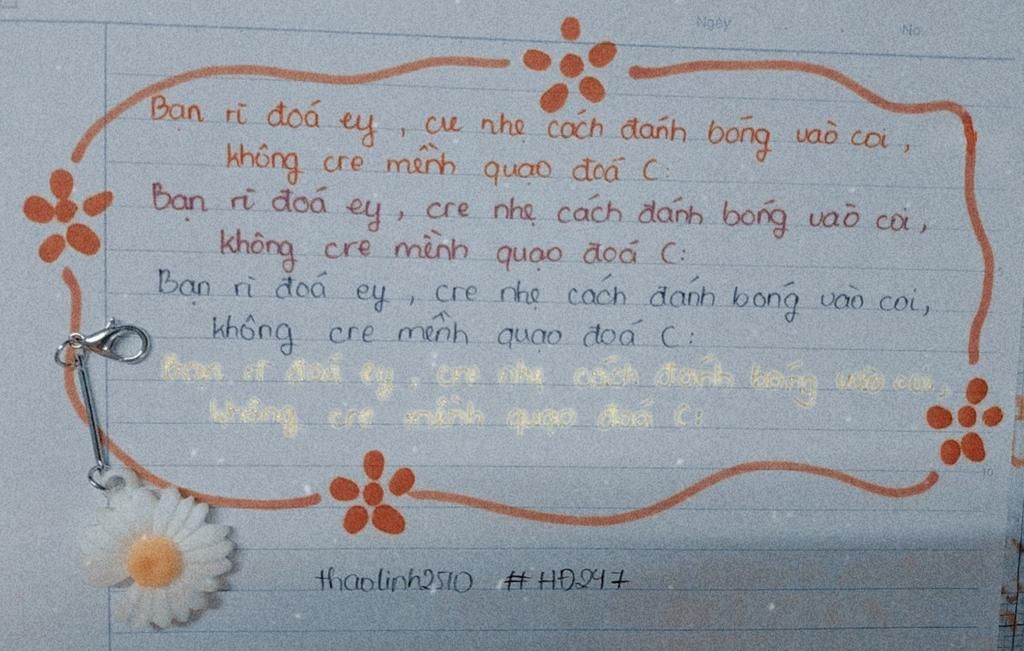 Ngày No.
Bạn rì đoá ey, cre nhẹ cách đánh bóng vaò coi,
không cre mềnh quạo đoá C:
Bạn rì đoá ey, cre nhẹ cách đánh bóng vaò coi,
không cre mềnh quạo đoá C:
Bạn rì đoá ey, cre nhẹ cách đánh bóng vaò coi,
không cre mềnh quạo đoá C:
Bạn rì đoá ey, cre nhẹ cách đánh bóng vaò coi,
không cre mềnh quạo đoá C:
thaolinh2510 #HĐ247